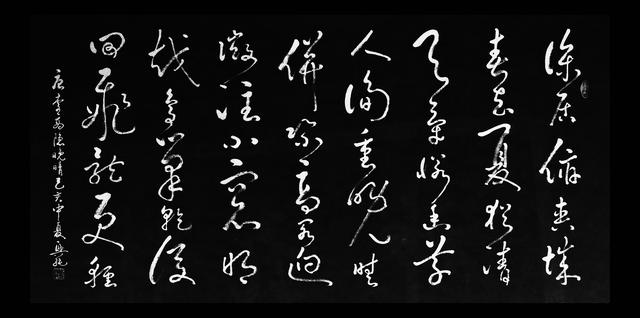 深居俯夾城
春去夏猶清
天意憐幽草
人間重晚晴
併添高閣迥
微注小窗明
越鳥巢乾後
回飛體更輕
唐李商隱晚晴己亥中夏